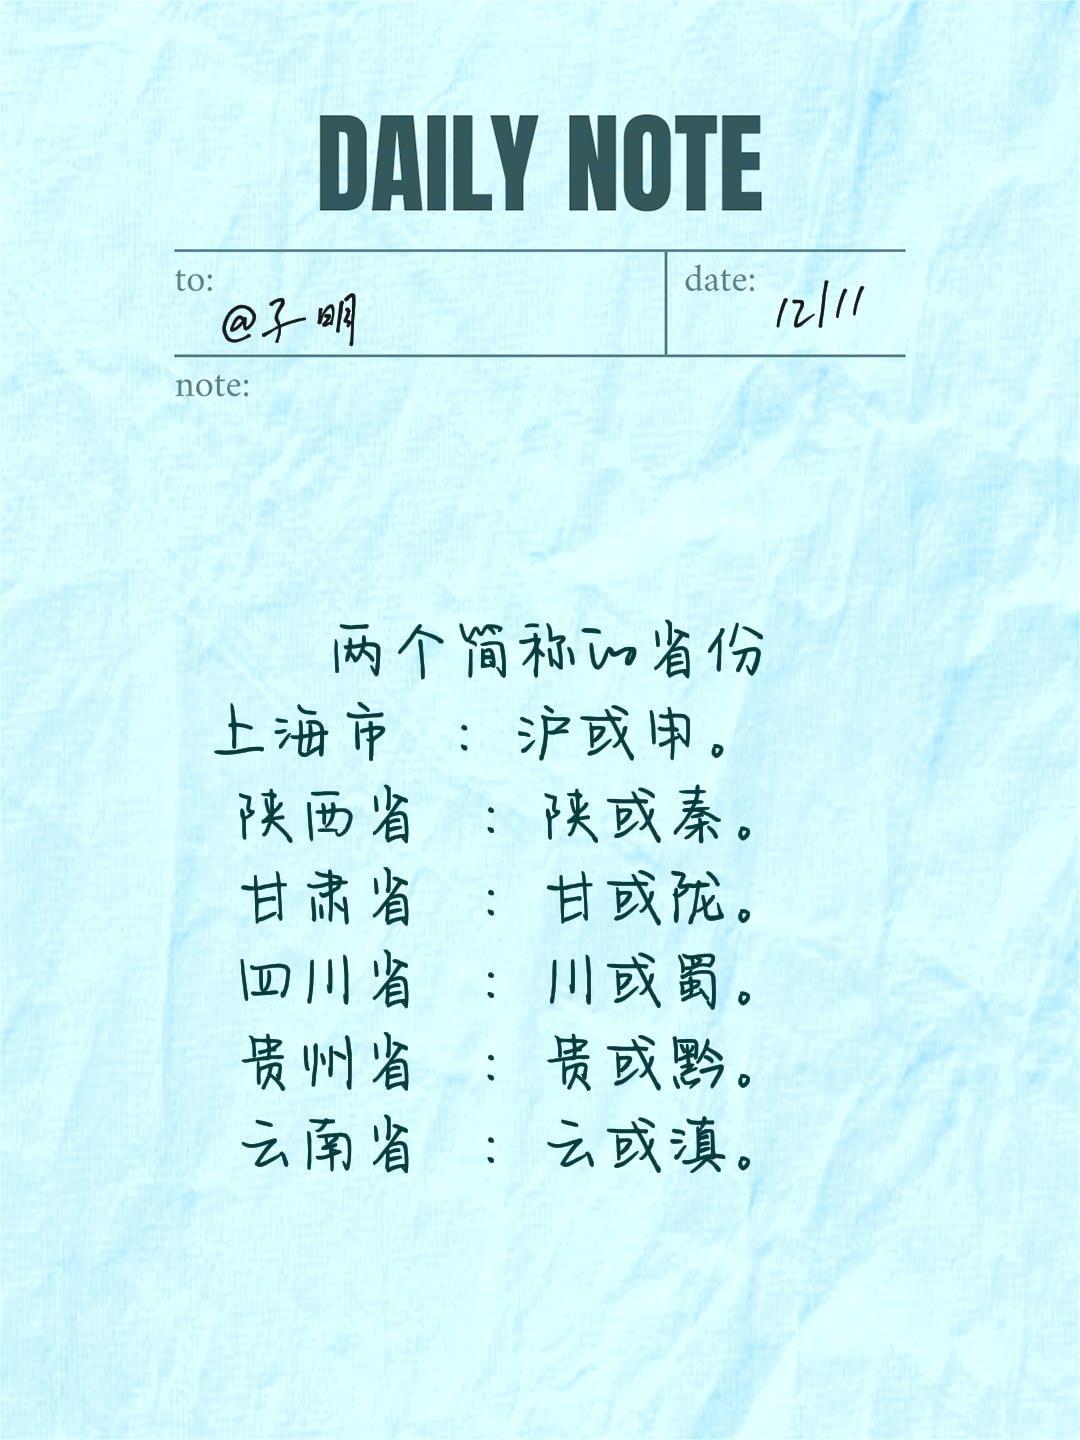 DAILY NOTE
to:
@子明
date:
12/11
note:
两个简称的省份
上海市 : 沪或申。
陕西省 : 陕或秦。
甘肃省 : 甘或陇。
四川省 : 川或蜀。
贵州省 : 贵或黔。
云南省 : 云或滇。